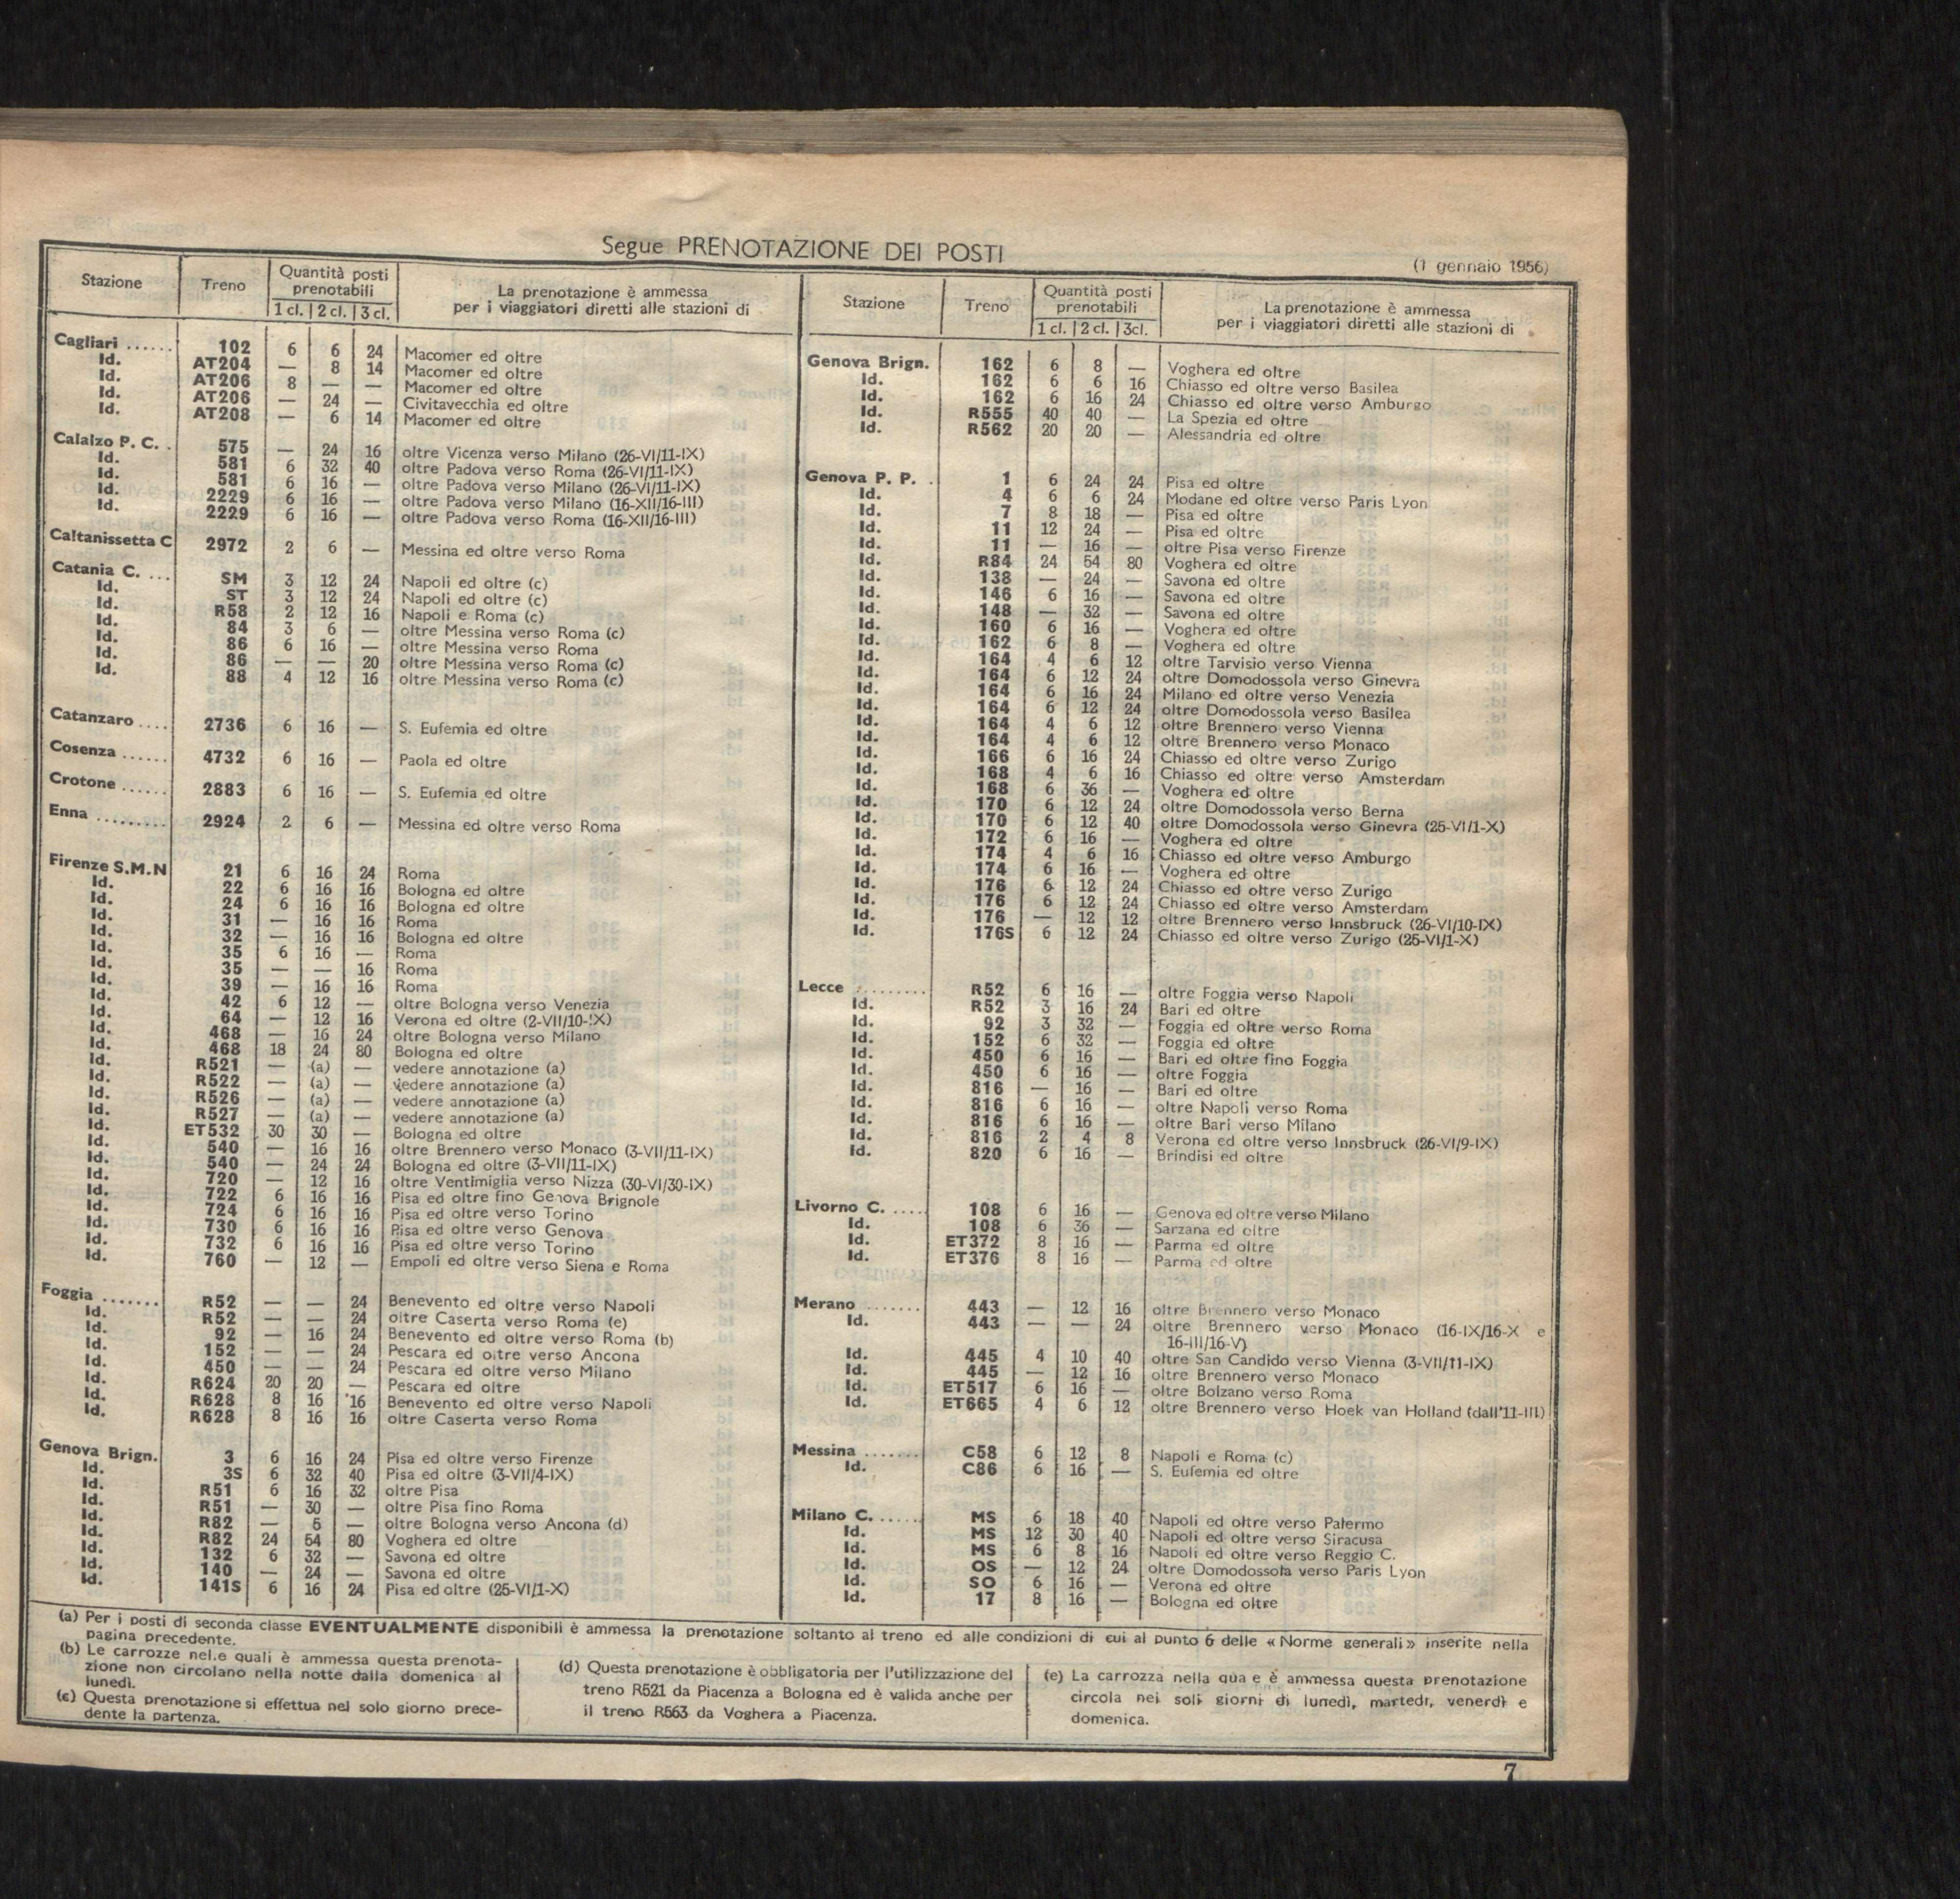 Segue PRENOTAZIONE DEI POSTI
(1 gennaio 1956)
Stazione Treno Quantità posti prenotabili La prenotazione è ammessa
1 cl. 2 cl. 3 cl. per i viaggiatori diretti alle stazioni di
Cagliari ...... 102 6 6 24 Macomer ed oltre
Id. AT204 — 8 14 Macomer ed oltre
Id. AT206 8 — — Macomer ed oltre
Id. AT206 — 24 — Civitavecchia ed oltre
Id. AT208 — 6 14 Macomer ed oltre
Calalzo P. C. . 575 — 24 16 oltre Vicenza verso Milano (26-VI/11-IX)
Id. 581 6 32 40 oltre Padova verso Roma (26-VI/11-IX)
Id. 581 6 16 — oltre Padova verso Milano (26-VI/11-IX)
Id. 2229 6 16 — oltre Padova verso Milano (16-XII/16-III)
Id. 2229 6 16 — oltre Padova verso Roma (16-XII/16-III)
Caltanissetta C 2972 2 6 — Messina ed oltre verso Roma
Catania C. ... SM 3 12 24 Napoli ed oltre (c)
Id. ST 3 12 24 Napoli ed oltre (c)
Id. R58 2 12 16 Napoli e Roma (c)
Id. 84 3 6 — oltre Messina verso Roma (c)
Id. 86 6 16 — oltre Messina verso Roma
Id. 86 — — 20 oltre Messina verso Roma (c)
Id. 88 4 12 16 oltre Messina verso Roma (c)
Catanzaro .... 2736 6 16 — S. Eufemia ed oltre
Cosenza ...... 4732 6 16 — Paola ed oltre
Crotone ...... 2883 6 16 — S. Eufemia ed oltre
Enna ......... 2924 2 6 — Messina ed oltre verso Roma
Firenze S.M.N 21 6 16 24 Roma
Id. 22 6 16 16 Bologna ed oltre
Id. 24 6 16 16 Bologna ed oltre
Id. 31 — 16 16 Roma
Id. 32 — 16 16 Bologna ed oltre
Id. 35 6 16 — Roma
Id. 35 — — 16 Roma
Id. 39 — 16 16 Roma
Id. 42 6 12 — oltre Bologna verso Venezia
Id. 64 — 12 16 Verona ed oltre (2-VII/10-IX)
Id. 468 — 16 24 oltre Bologna verso Milano
Id. 468 18 24 80 Bologna ed oltre
Id. R521 — (a) — vedere annotazione (a)
Id. R522 — (a) — vedere annotazione (a)
Id. R526 — (a) — vedere annotazione (a)
Id. R527 — (a) — vedere annotazione (a)
Id. ET532 30 30 — Bologna ed oltre
Id. 540 — 16 16 oltre Brennero verso Monaco (3-VII/11-IX)
Id. 540 — 24 24 Bologna ed oltre (3-VII/11-IX)
Id. 720 — 12 16 oltre Ventimiglia verso Nizza (30-VI/30-IX)
Id. 722 6 16 16 Pisa ed oltre fino Genova Brignole
Id. 724 6 16 16 Pisa ed oltre verso Torino
Id. 730 6 16 16 Pisa ed oltre verso Genova
Id. 732 6 16 16 Pisa ed oltre verso Torino
Id. 760 — 12 — Empoli ed oltre verso Siena e Roma
Foggia ....... R52 — — 24 Benevento ed oltre verso Napoli
Id. R52 — — 24 oltre Caserta verso Roma (e)
Id. 92 — 16 24 Benevento ed oltre verso Roma (b)
Id. 152 — — 24 Pescara ed oltre verso Ancona
Id. 450 — — 24 Pescara ed oltre verso Milano
Id. R624 20 20 — Pescara ed oltre
Id. R628 8 16 16 Benevento ed oltre verso Napoli
Id. R628 8 16 16 oltre Caserta verso Roma
Genova Brign. 3 6 16 24 Pisa ed oltre verso Firenze
Id. 3S 6 32 40 Pisa ed oltre (3-VII/4-IX)
Id. R51 6 16 32 oltre Pisa
Id. R51 — 30 — oltre Pisa fino Roma
Id. R82 — 6 — oltre Bologna verso Ancona (d)
Id. R82 24 54 80 Voghera ed oltre
Id. 132 6 32 — Savona ed oltre
Id. 140 — 24 — Savona ed oltre
Id. 141S 6 16 24 Pisa ed oltre (25-VI/1-X)
Stazione Treno Quantità posti prenotabili La prenotazione è ammessa
1 cl. 2 cl. 3cl. per i viaggiatori diretti alle stazioni di
Genova Brign. 162 6 8 — Voghera ed oltre
Id. 162 6 6 16 Chiasso ed oltre verso Basilea
Id. 162 6 16 24 Chiasso ed oltre verso Amburgo
Id. R555 40 40 — La Spezia ed oltre
Id. R562 20 20 — Alessandria ed oltre
Genova P. P. . 1 6 24 24 Pisa ed oltre
Id. 4 6 6 24 Modane ed oltre verso Paris Lyon
Id. 7 8 18 — Pisa ed oltre
Id. 11 12 24 — Pisa ed oltre
Id. 11 — 16 — oltre Pisa verso Firenze
Id. R84 24 54 80 Voghera ed oltre
Id. 138 — 24 — Savona ed oltre
Id. 146 6 16 — Savona ed oltre
Id. 148 — 32 — Savona ed oltre
Id. 160 6 16 — Voghera ed oltre
Id. 162 6 8 — Voghera ed oltre
Id. 164 4 6 12 oltre Tarvisio verso Vienna
Id. 164 6 12 24 oltre Domodossola verso Ginevra
Id. 164 6 16 24 Milano ed oltre verso Venezia
Id. 164 6 12 24 oltre Domodossola verso Basilea
Id. 164 4 6 12 oltre Brennero verso Vienna
Id. 164 4 6 12 oltre Brennero verso Monaco
Id. 166 6 16 24 Chiasso ed oltre verso Zurigo
Id. 168 4 6 16 Chiasso ed oltre verso Amsterdam
Id. 168 6 36 — Voghera ed oltre
Id. 170 6 12 24 oltre Domodossola verso Berna
Id. 170 6 12 40 oltre Domodossola verso Ginevra (25-VI/1-X)
Id. 172 6 16 — Voghera ed oltre
Id. 174 4 6 16 Chiasso ed oltre verso Amburgo
Id. 174 6 16 — Voghera ed oltre
Id. 176 6 12 24 Chiasso ed oltre verso Zurigo
Id. 176 6 12 24 Chiasso ed oltre verso Amsterdam
Id. 176 — 12 12 oltre Brennero verso Innsbruck (26-VI/10-IX)
Id. 176S 6 12 24 Chiasso ed oltre verso Zurigo (25-VI/1-X)
Lecce ......... R52 6 16 — oltre Foggia verso Napoli
Id. R52 3 16 24 Bari ed oltre
Id. 92 3 32 — Foggia ed oltre verso Roma
Id. 152 6 32 — Foggia ed oltre
Id. 450 6 16 — Bari ed oltre fino Foggia
Id. 450 6 16 — oltre Foggia
Id. 816 — 16 — Bari ed oltre
Id. 816 6 16 — oltre Napoli verso Roma
Id. 816 6 16 — oltre Bari verso Milano
Id. 816 2 4 8 Verona ed oltre verso Innsbruck (26-VI/9-IX)
Id. 820 6 16 — Brindisi ed oltre
Livorno C. .... 108 6 16 — Genova ed oltre verso Milano
Id. 108 6 36 — Sarzana ed oltre
Id. ET372 8 16 — Parma ed oltre
Id. ET376 8 16 — Parma ed oltre
Merano ....... 443 — 12 16 oltre Brennero verso Monaco
Id. 443 — — 24 oltre Brennero verso Monaco (16-IX/16-X e
16-III/16-V)
Id. 445 4 10 40 oltre San Candido verso Vienna (3-VII/11-IX)
Id. 445 — 12 16 oltre Brennero verso Monaco
Id. ET517 6 16 — oltre Bolzano verso Roma
Id. ET665 4 6 12 oltre Brennero verso Hoek van Holland (dall'11-III)
Messina ....... C58 6 12 8 Napoli e Roma (c)
Id. C86 6 16 — S. Eufemia ed oltre
Milano C. ...... MS 6 18 40 Napoli ed oltre verso Palermo
Id. MS 12 30 40 Napoli ed oltre verso Siracusa
Id. MS 6 8 16 Napoli ed oltre verso Reggio C.
Id. OS — 12 24 oltre Domodossola verso Paris Lyon
Id. SO 6 16 — Verona ed oltre
Id. 17 8 16 — Bologna ed oltre
(a) Per i posti di seconda classe EVENTUALMENTE disponibili è ammessa la prenotazione soltanto al treno ed alle condizioni di cui al punto 6 delle «Norme generali» inserite nella
pagina precedente.
(b) Le carrozze nel.e quali è ammessa questa prenota-
zione non circolano nella notte dalla domenica al
lunedì.
(c) Questa prenotazione si effettua nel solo giorno prece-
dente la partenza.
(d) Questa prenotazione è obbligatoria per l'utilizzazione del
treno R521 da Piacenza a Bologna ed è valida anche per
il treno R563 da Voghera a Piacenza.
(e) La carrozza nella qua e è ammessa questa prenotazione
circola nei soli giorni di lunedì, martedì, venerdì e
domenica.
7